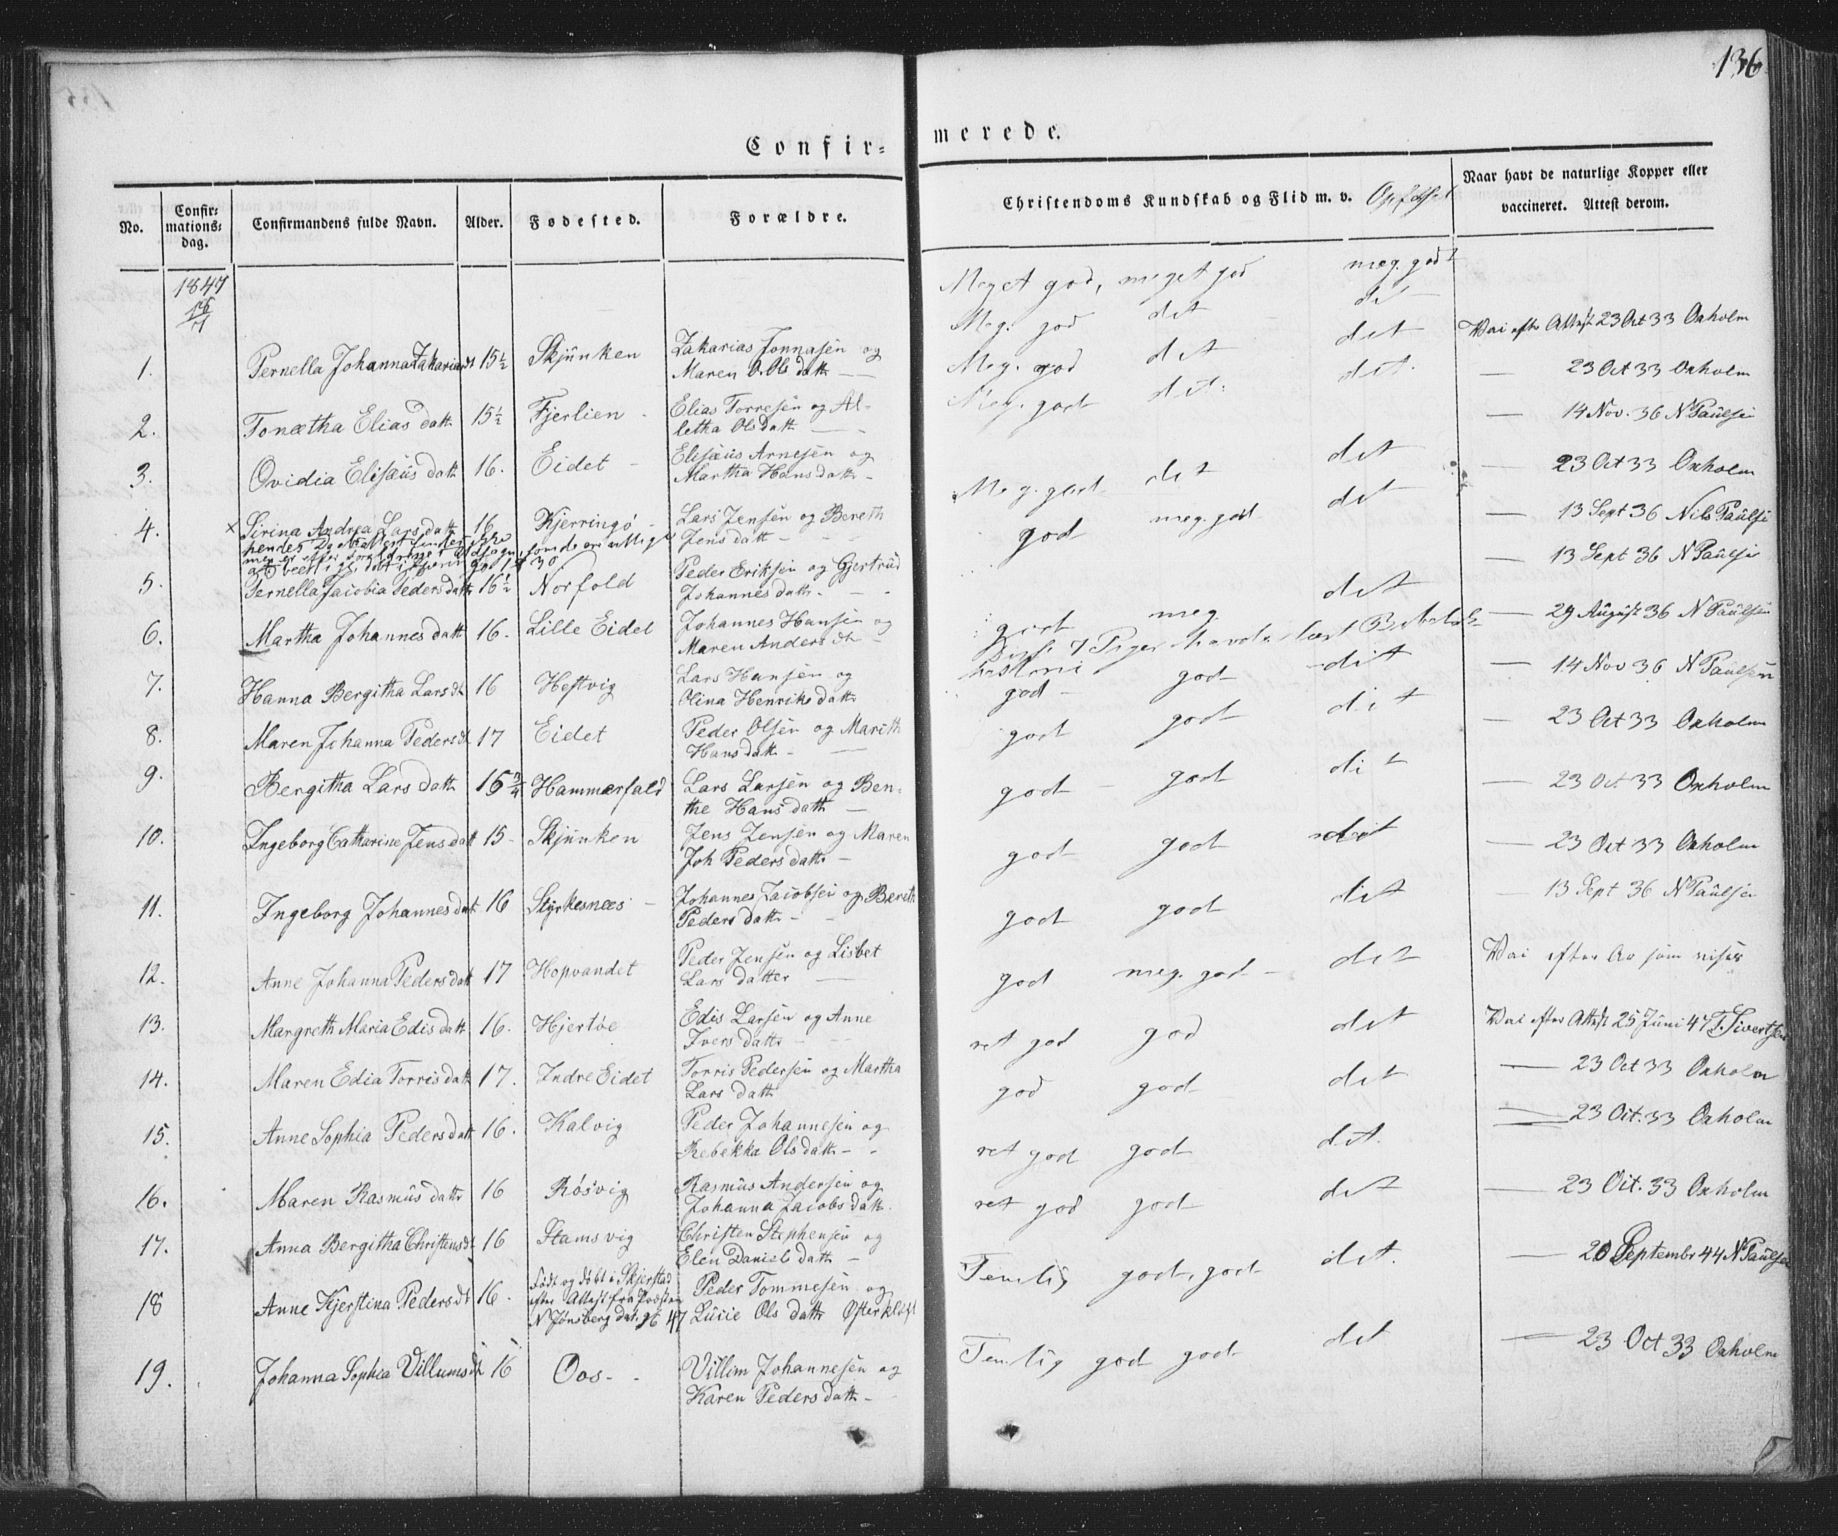 136
Confir-
merede.
No.
Confir-
mations-
dag.
Confirmandens fulde Navn.
Alder.
Fødested.
Forældre.
Christendoms Kundskab og Flid m. v.
Naar havt de naturlige Kopper eller
vaccineret. Attest derom.
1847
1. Pernella Johanna Zakariasdt 15½ Skjünken Zakarias Jonnasen og
Maren O. Ols datt
Meget god, meget god meg. godt
Vac efter Attest 23 Oct 33 Oxholm
2. Tonætha Elias datt 15½ Fjerlien Elias Torresen og Al-
letha Olsdatt
Meg. god det det
23 Oct 33 Oxholm
3. Ovidia Elisæus datt 16. Eidet Elisæus Arnesen og
Martha Hansdatt
Meg. god det det
14 Nov. 36 N Paulsen
4. × Sirina Andrea Lars datt 16 Kjerringø Lars Jensen og Bereth
Jens datt
Meg. godt det. det.
23 Oct 33 Oxholm
5. Pernella Jacobia Peders datt 16½ Norfold Peder Eriksen og Gjertrud
Johannes datt
Meg. godt det det
13 Sept 36 Nils Paulsen
6. Martha Johannes datt 16. Lille Eidet Johannes Hansen og
Maren Anders dt
god meg. god det
13 Sept 36 N Paulsen
7. Hanna Bergitha Lars dt 16 Heftvig Lars Hansen og
Olina Henriks datt
godt meg det
29 August 36 N Paulsen
7 Piger havde læst
8. Maren Johanna Peders dt 17 Eidet Peder Olsen og Marith
Hans datt
god god det
14 Nov 36 N Paulsen
9. Bergitha Lars datt 15¾ Hammerfald Lars Larsen og Ben-
the Hans datt
godt godt det
23 Oct 33 Oxholm
10. Ingeborg Catharine Jens datt 15 Skjünken Jens Jensen og Maren
Joh Peders datt
god god det
23 Oct 33 Oxholm
11. Ingeborg Johannes datt 16 Styrkesnæs Johannes Jacobsen og Bereth
Peders datt
god god det
23 Oct 33 Oxholm
12. Anne Johanna Peders datt 17 Hopvandet Peder Jensen og Lisbet
Lars datter
godt godt det
13 Sept 36 N Paulsen
13. Margreth Maria Edis datt 16. Hjertøe Edis Larsen og Anne
Ivers datt
god meg. god det
Vac efter
14. Maren Edia Torris datt 17. Indre Eidet Torris Pedersen og Martha
Lars datt
ret god god det
Vac efter Attest 25 Juni 47 T. Sivertsen
15. Anne Sophia Peders datt 16. Kalvig Peder Johannesen og
Rebekka Ols datt
god god det
23 Oct 33 Oxholm
16. Maren Rasmus datt 16 Røsvig Rasmus Andersen og
Johanna Jacobs datt.
ret god god det.
23 Oct. 33 Oxholm
17. Anna Bergitha Christens dt 16 Stamsvig Christen Stephensen og
Elen Daniels datt
ret god god det
23 Oct. 33 Oxholm
18 Anne Kjerstina Peders dt 16. Født og døbt i Skjerstad
efter Attest fra Præsten
N Jønsberg dat. Peder Tommesen og
Lucie Ols datt
Temlig godt, god det.
20 Septembr 44 N Paulsen
19. Johanna Sophia Villums dt 16 Oos Villum Johannesen og
Karen Peders datt
Temlig god god det
23 Oct 33 Oxholm